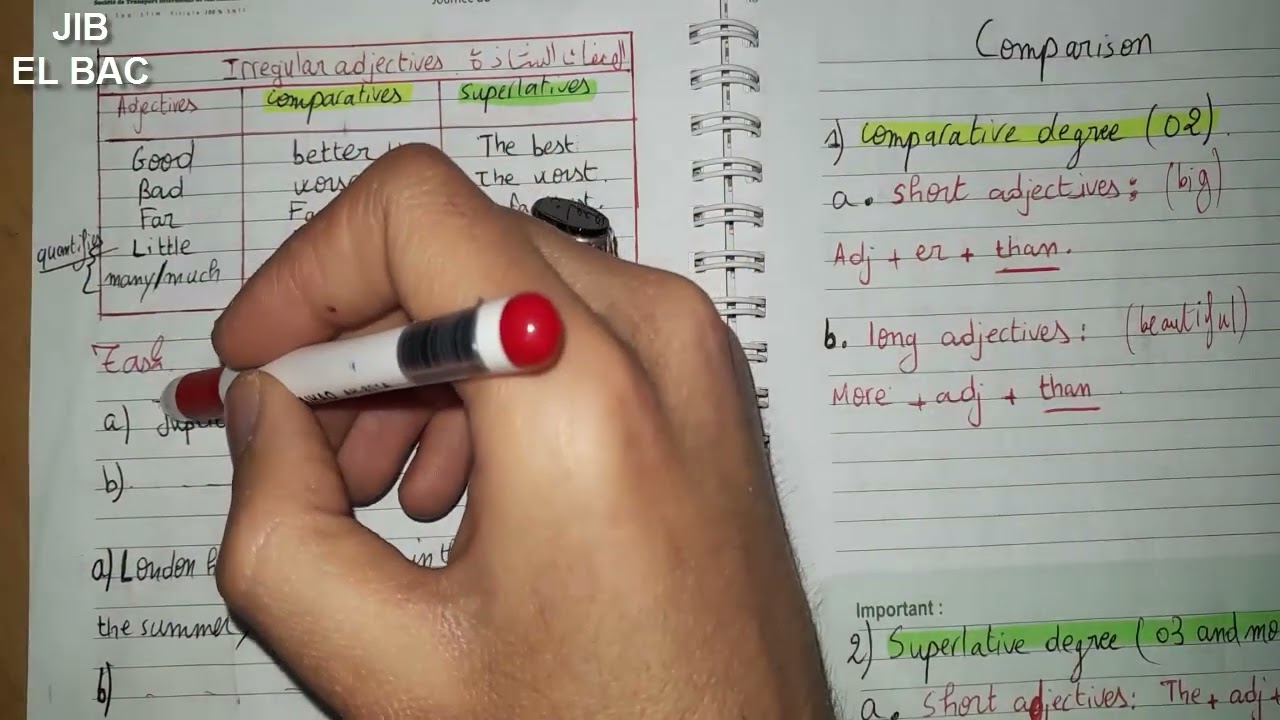 JIB
EL BAC
Irregular adjectives الصفات الشاذة
Adjectives comparatives superlatives
Good better The best
Bad The worst.
Far
Little
many/much
Task
a)
b)
a) London in
the summer
b)
Comparison
1) comparative degree (02).
a. short adjectives: (big)
Adj + er + than.
b. long adjectives: (beautiful)
More + adj + than
Important :
2) Superlative degree (03 and
a. short adjectives: The + adj +